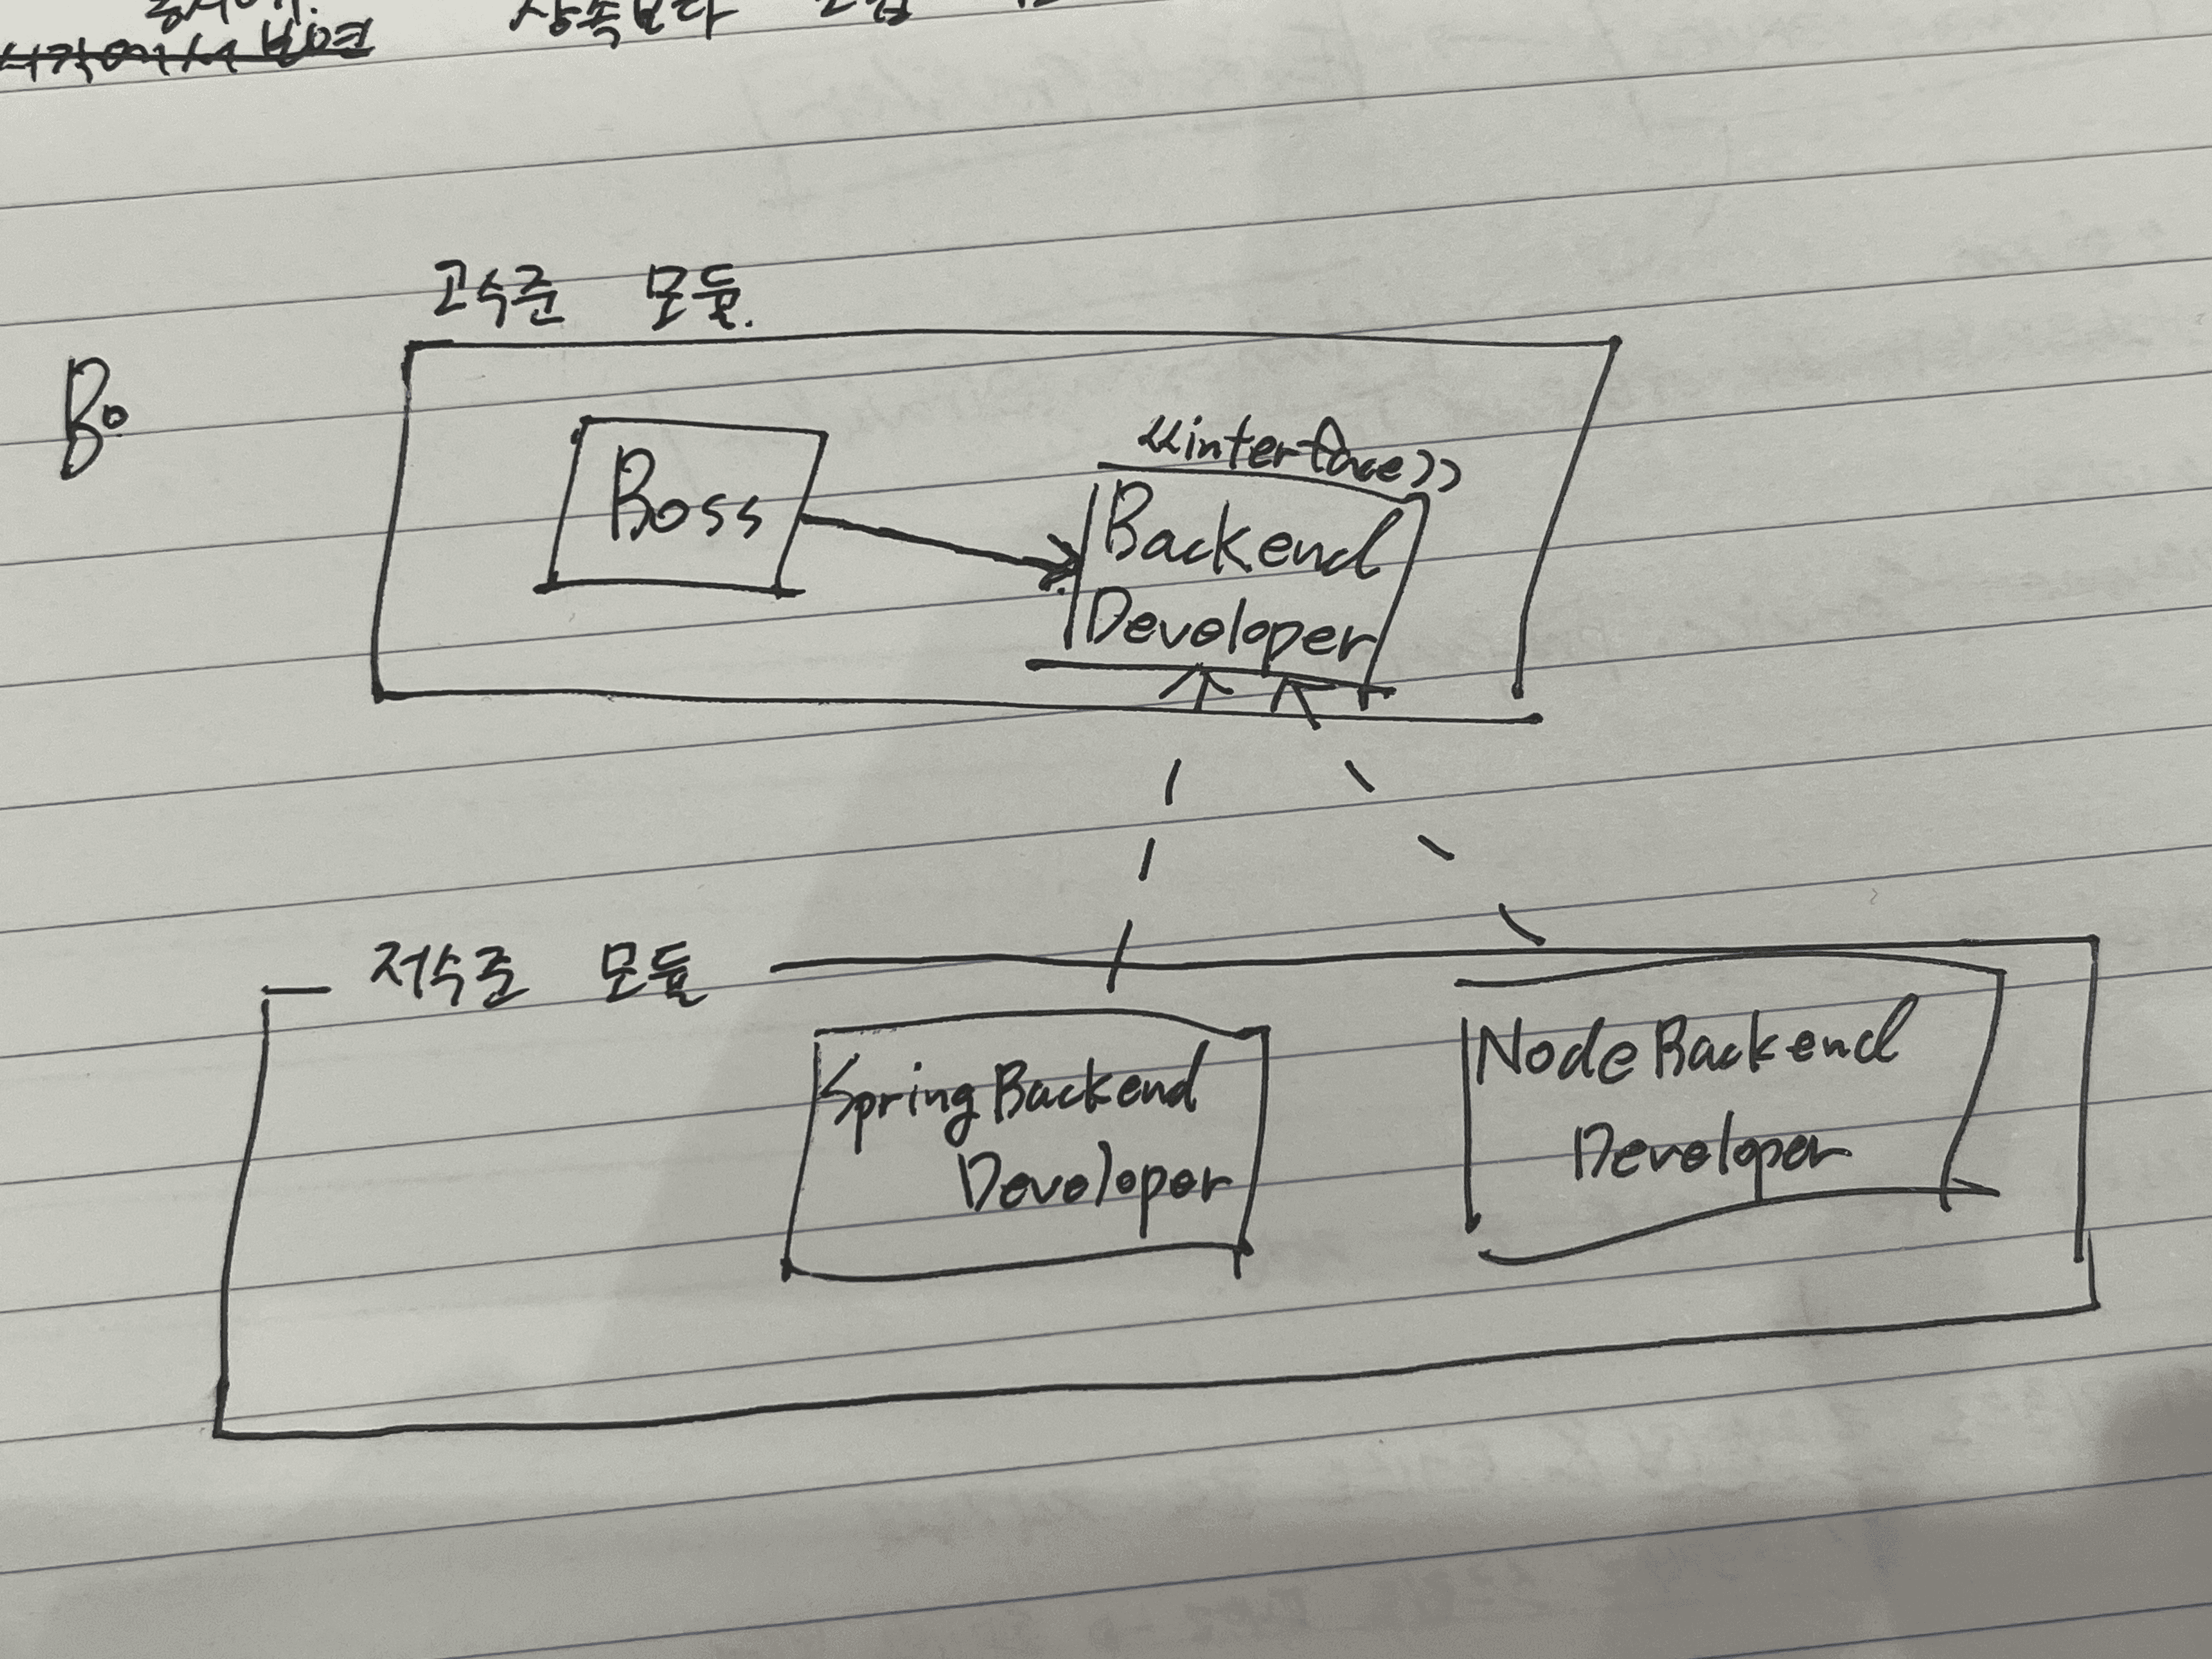 상속보다
고수준 모듈.
Bo
Boss
<<interface>>
Backend
Developer
저수준 모듈
SpringBackend
Developer
NodeBackend
Developer